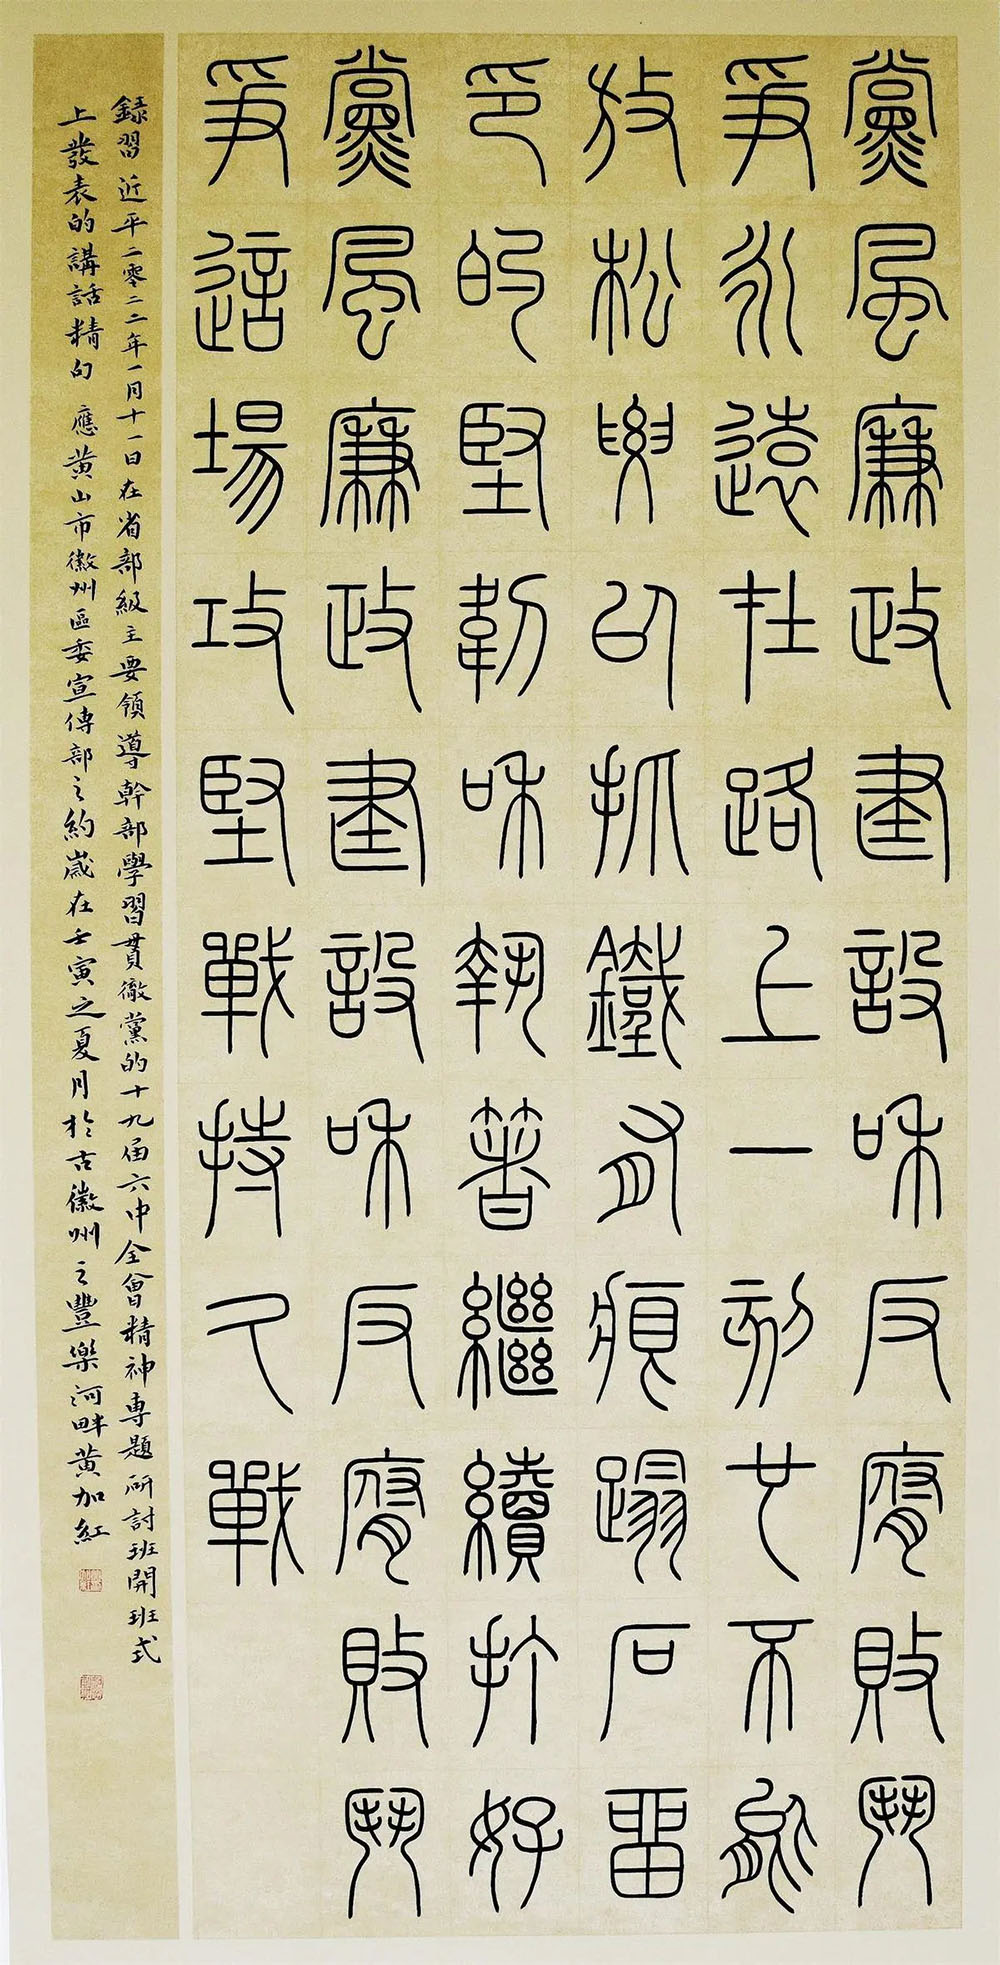 黨風廉政建設和反腐敗鬥
爭永遠在路上一刻也不能
放松要以抓鐵有痕踏石留
印的堅韌和執著繼續打好
黨風廉政建設和反腐敗鬥
爭這場攻堅戰持久戰
錄習近平二零二二年一月十一日在省部級主要領導幹部學習貫徹黨的十九屆六中全會精神專題研討班開班式
上發表的講話精句 應黃山市徽州區委宣傳部之約歲在壬寅之夏月於古徽州之豐樂河畔黃加紅